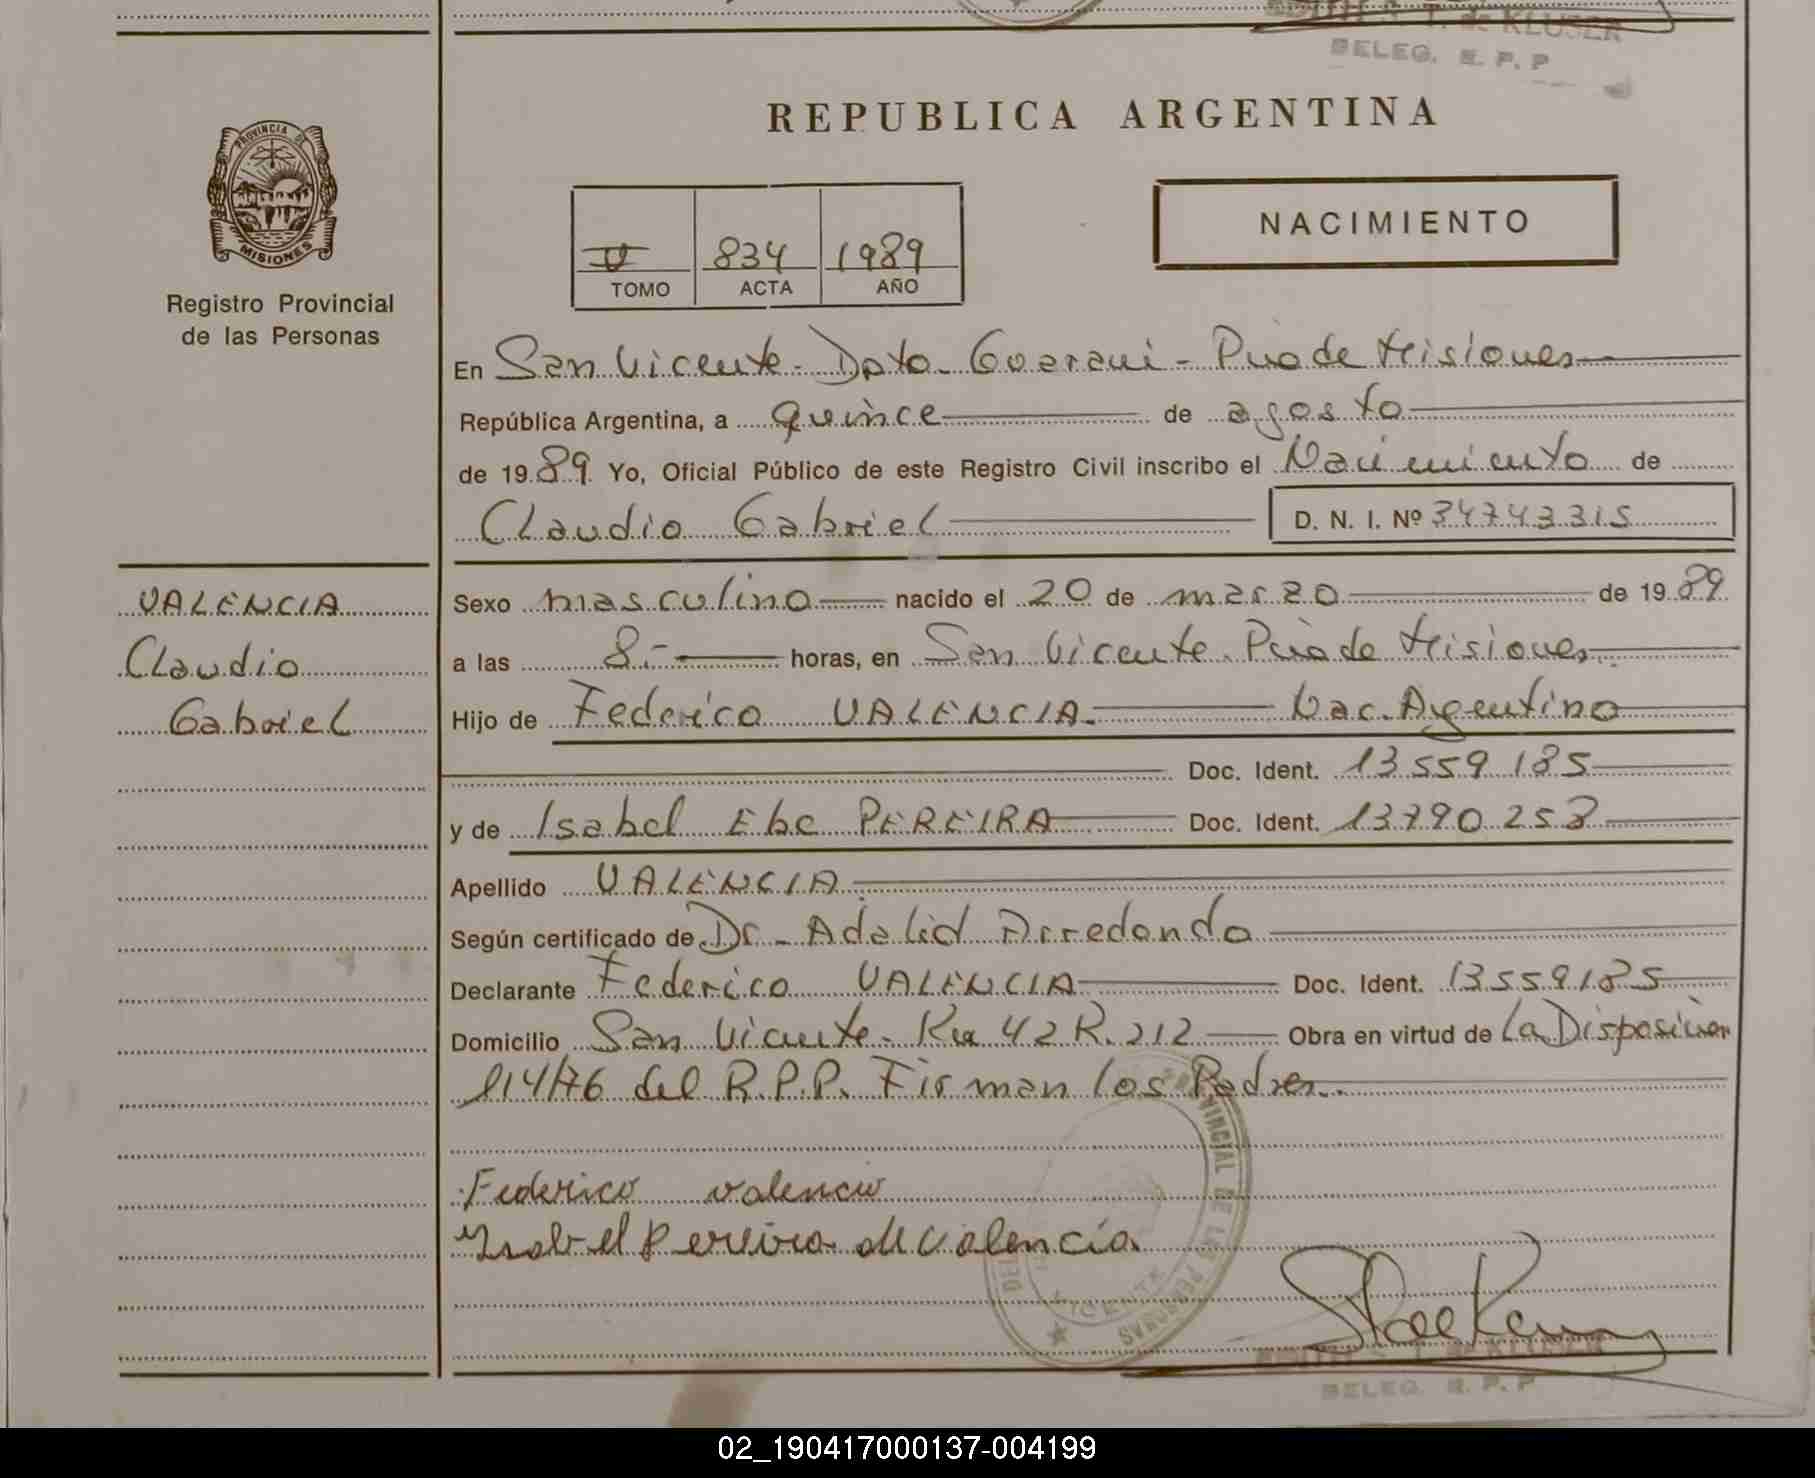 T. de KLUSER
DELEG. R. P. P
REPUBLICA ARGENTINA
PROVINCIA DE
MISIONES
Registro Provincial
de las Personas
NACIMIENTO
V 834 1989
TOMO ACTA AÑO
En San Vicente - Dpto. Guarani - Pcia de Misiones
República Argentina, a quince de agosto
de 1989 Yo, Oficial Público de este Registro Civil inscribo el Nacimiento de
Claudio Gabriel D. N. I. Nº 34743315
VALENCIA
Claudio
Gabriel
Sexo masculino nacido el 20 de marzo de 1989
a las 8.- horas, en San Vicente. Pcia de Misiones
Hijo de Federico VALENCIA. Nac. Argentino
Doc. Ident. 13 559 185
y de Isabel PEREIRA Doc. Ident. 13790 253
Apellido VALENCIA
Según certificado de Dr. Adalid Arredondo
Declarante Federico VALENCIA Doc. Ident. 13559185
Domicilio San Vicente. 42 R. 212 Obra en virtud de La Disposicion
114/76 del R.P.P. Firman los Padres.
Federico valencia
Ysabel Pereira de valencia
PROVINCIAL DE LAS PERSONAS
VICENTE
T. de KLUSER
DELEG. R. P. P
02_190417000137-004199